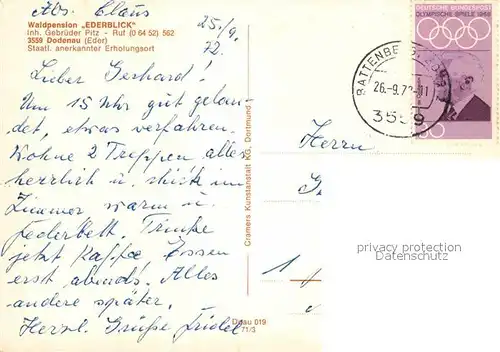 Abs. Claus
Waldpension „EDERBLICK"
Inh. Gebrüder Pitz - Ruf (0 64 52) 562
3559 Dodenau (Eder)
Staatl. anerkannter Erholungsort
25./9.
72.
Lieber Gerhard!
Um 15 Uhr gut gelan
det, etwas verfahren.
Wohne 2 Treppen, alles
herrlich u. schick im
Zimmer warm u.
Federbett. Trinke
jetzt Kaffee, Essen
erst abends. Alles
andere später.
Herzl. Grüße Friedel
Cramers Kunstanstalt KG, Dortmund
Dodau 019
71/3
DEUTSCHE BUNDESPOST
OLYMPISCHE SPIELE 1968
BATTENBERG
26.-9.72-11
3559
Herrn
G.
privacy protection
1